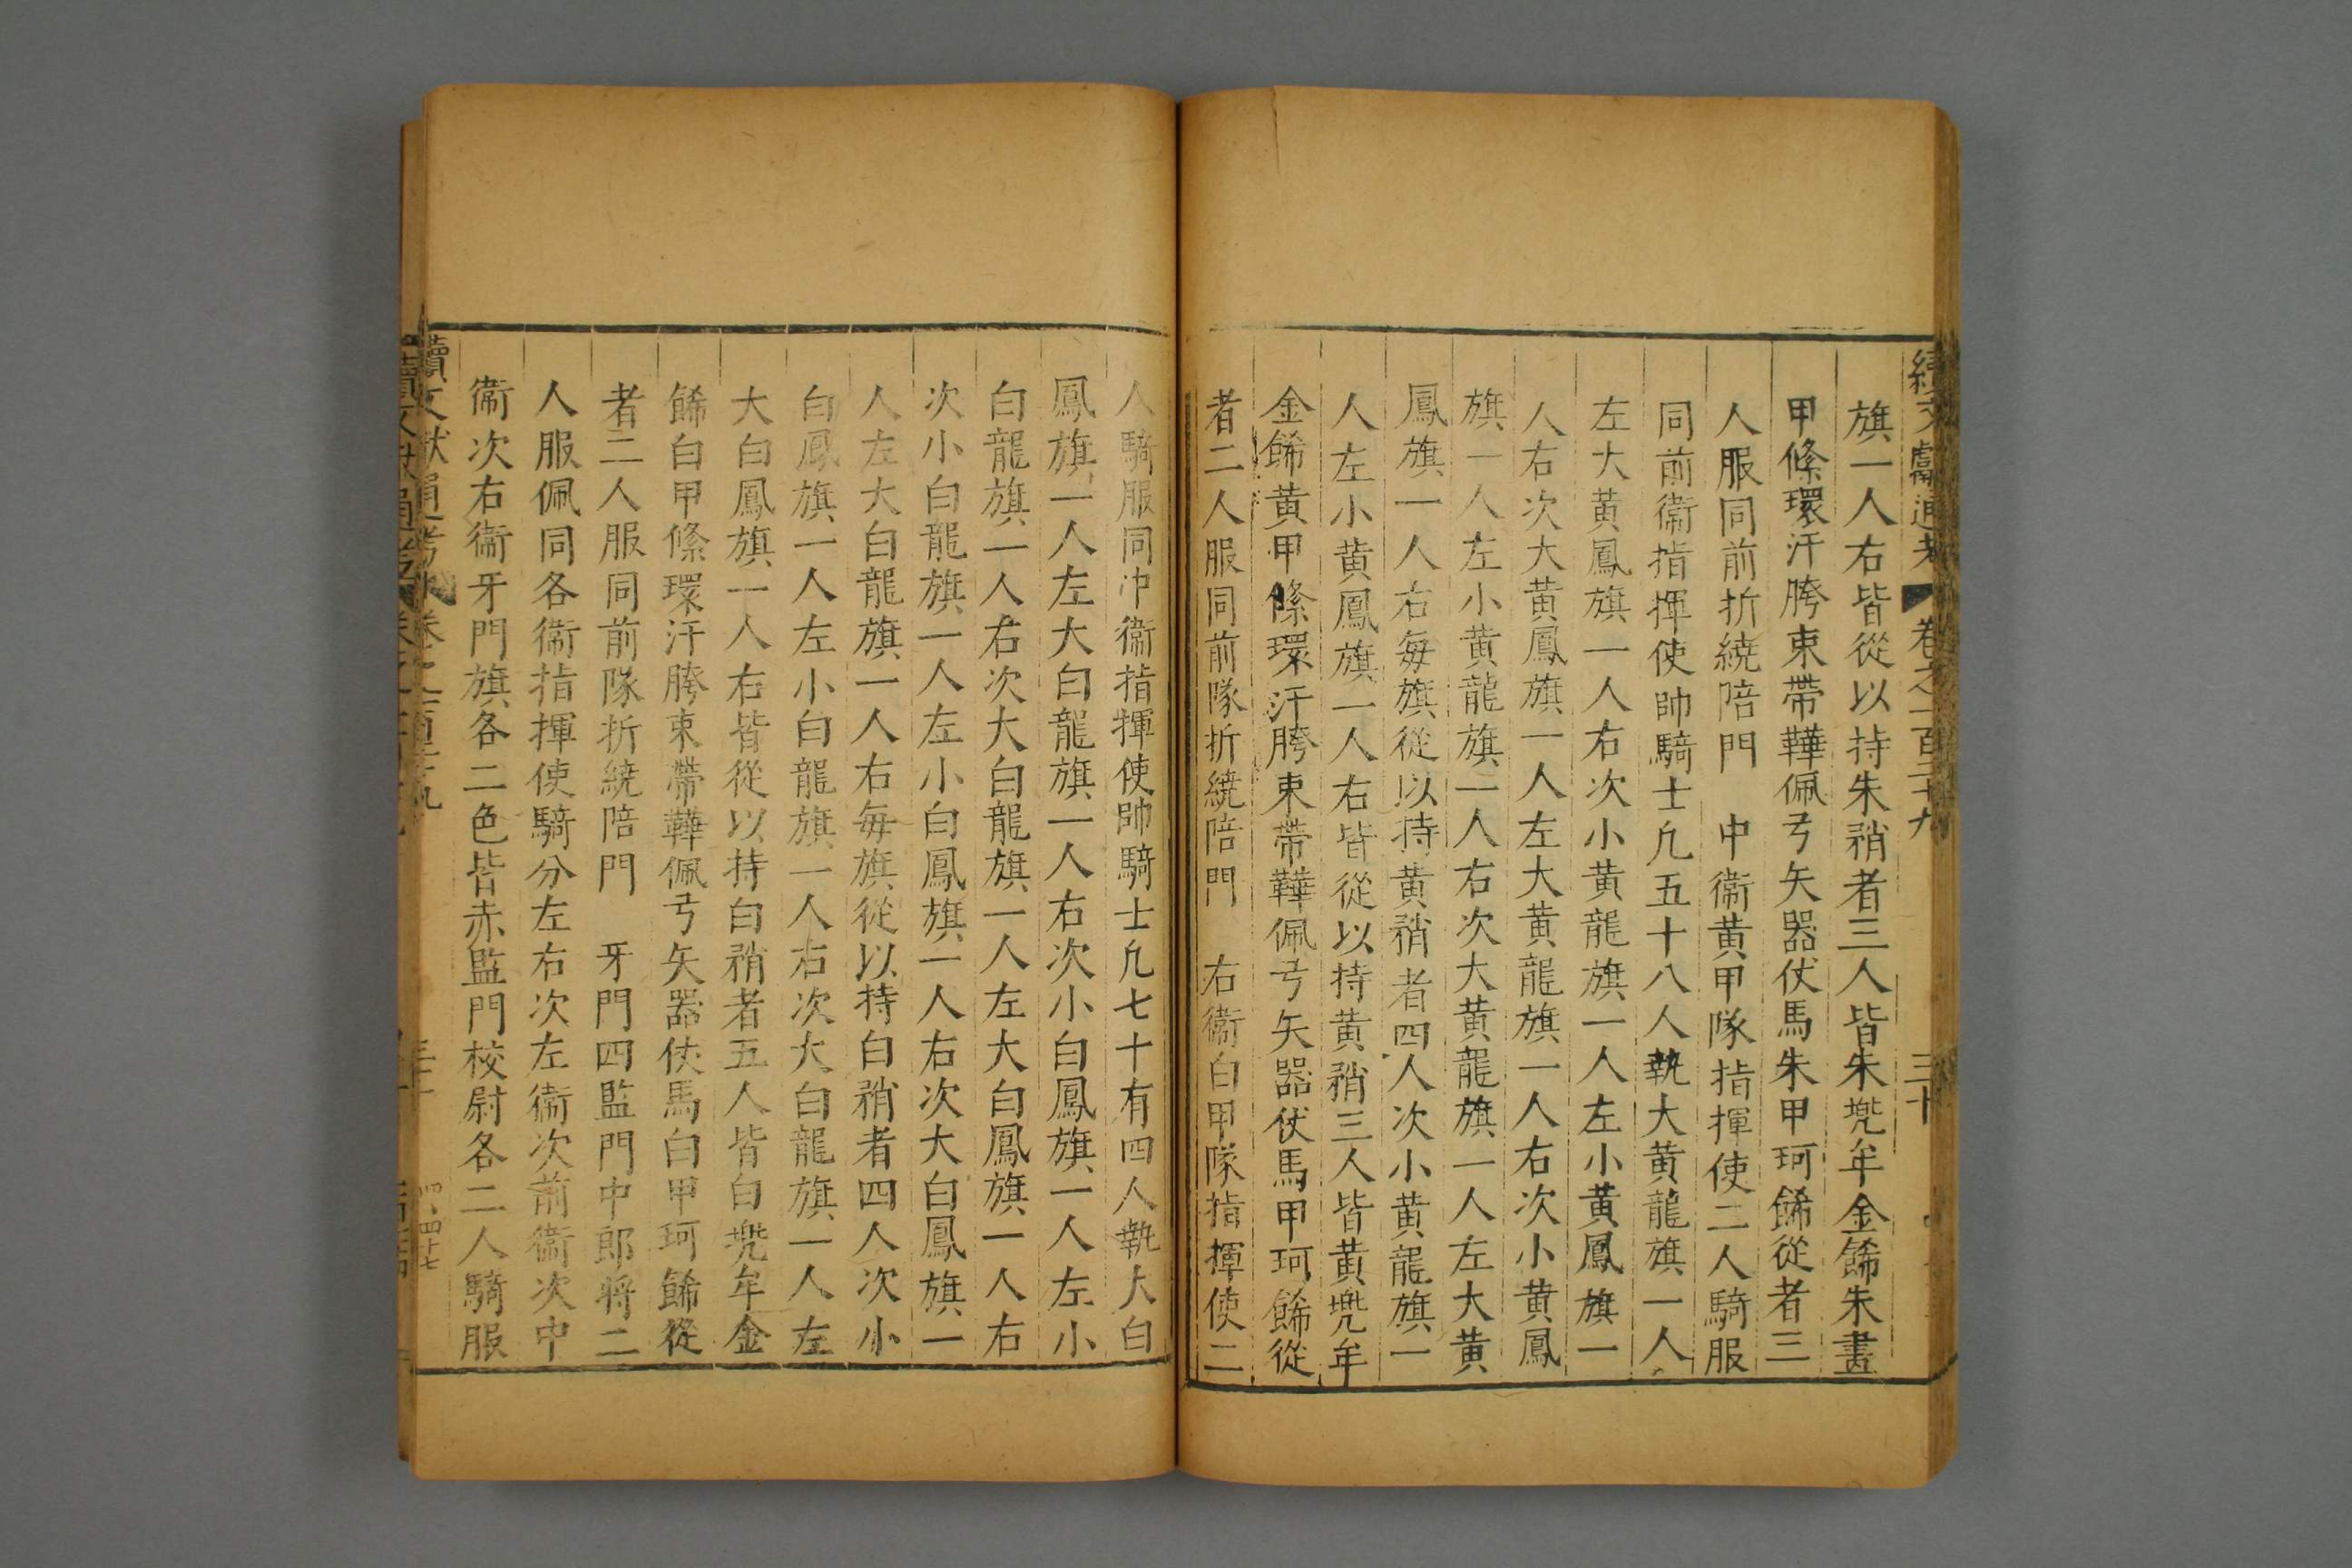 續文獻通考 卷之一百二十九 三十
旗一人右皆從以持朱矟者三人皆朱兠牟金餙朱畫
甲絛環汗胯束帶鞾佩弓矢器仗馬朱甲珂餙從者三
人服同前折繞陪門　中衞黃甲隊指揮使二人騎服
同前衞指揮使帥騎士凢五十八人執大黃龍旗一人
左大黃鳳旗一人右次小黃龍旗一人左小黃鳳旗一
人右次大黃鳳旗一人左大黃龍旗一人右次小黃鳳
旗一人左小黃龍旗一人右次大黃龍旗一人左大黃
鳳旗一人右每旗從以持黃矟者四人次小黃龍旗一
人左小黃鳳旗一人右皆從以持黃矟三人皆黃兠牟
金餙黃甲絛環汗胯束帶鞾佩弓矢器仗馬甲珂餙從
者二人服同前隊折繞陪門　右衞白甲隊指揮使二
人騎服同冲衞指揮使帥騎士凢七十有四人執大白
鳳旗一人左大白龍旗一人右次小白鳳旗一人左小
白龍旗一人右次大白龍旗一人左大白鳳旗一人右
次小白龍旗一人左小白鳳旗一人右次大白鳳旗一
人左大白龍旗一人右每旗從以持白矟者四人次小
白鳳旗一人左小白龍旗一人右次大白龍旗一人左
大白鳳旗一人右皆從以持白矟者五人皆白兠牟金
餙白甲絛環汗胯束帶鞾佩弓矢器仗馬白甲珂餙從
者二人服同前隊折繞陪門　牙門四監門中郎将二
人服佩同各衞指揮使騎分左右次左衞次前衞次中
衞次右衞牙門旗各二色皆赤監門校尉各二人騎服